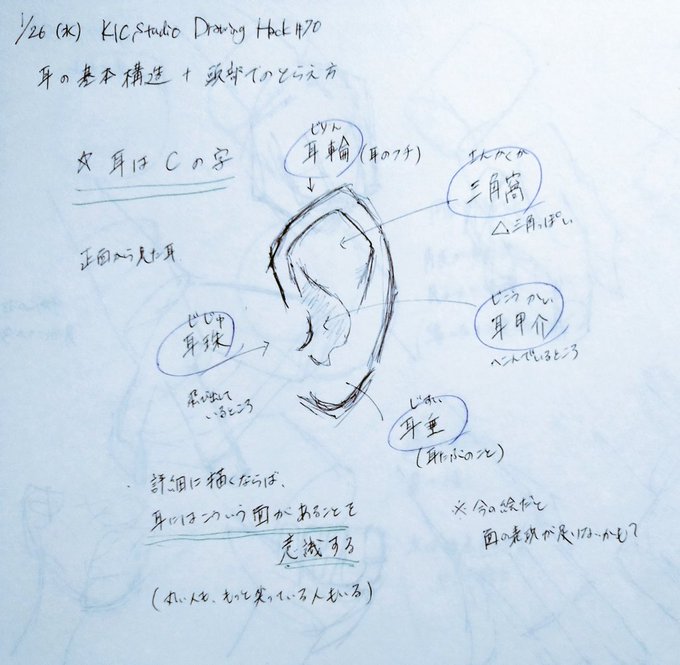 1/26 (水) KIC Studio Drawing Hack #70
耳の基本構造 + 頭部でのとらえ方
☆ 耳は C の字
じりん
耳輪 (耳のフチ)
さんかくか
三角窩
△三角っぽい
正面から見た耳
じじゅ
耳珠
飛び出して
いるところ
じこうかい
耳甲介
へこんでいるところ
じすい
耳垂
(耳たぶのこと)
詳細に描くならば、
耳にはこういう面があることを
意識する
(丸い人も、もっと尖っている人もいる)
※今の絵だと
面の表現が足りないかも?